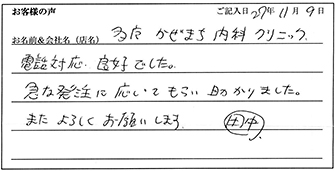 お客様の声 ご記入日 27年 11月 9日
お名前&会社名(店名) 多店 かぜまち 内科 クリニック
電話対応 良好でした。
急な発注に応いてもらい助かりました。
また よろしく お願いします。 田中